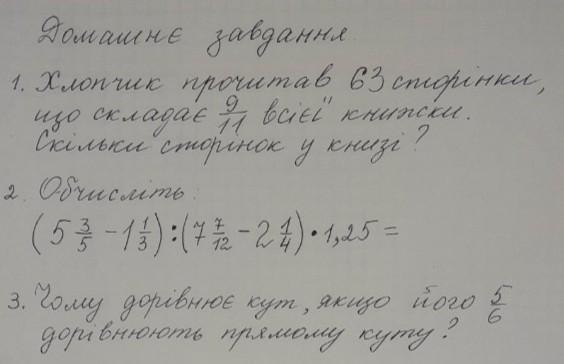 Домашнє завдання.
1. Хлопчик прочитав 63 сторінки,
що складає 9/11 всієї книжки.
Скільки сторінок у книзі?
2. Обчисліть:
(5 3/5 - 1 1/3) : (7 7/12 - 2 1/4) • 1,25 =
3. Чому дорівнює кут, якщо його 5/6
дорівнюють прямому куту?